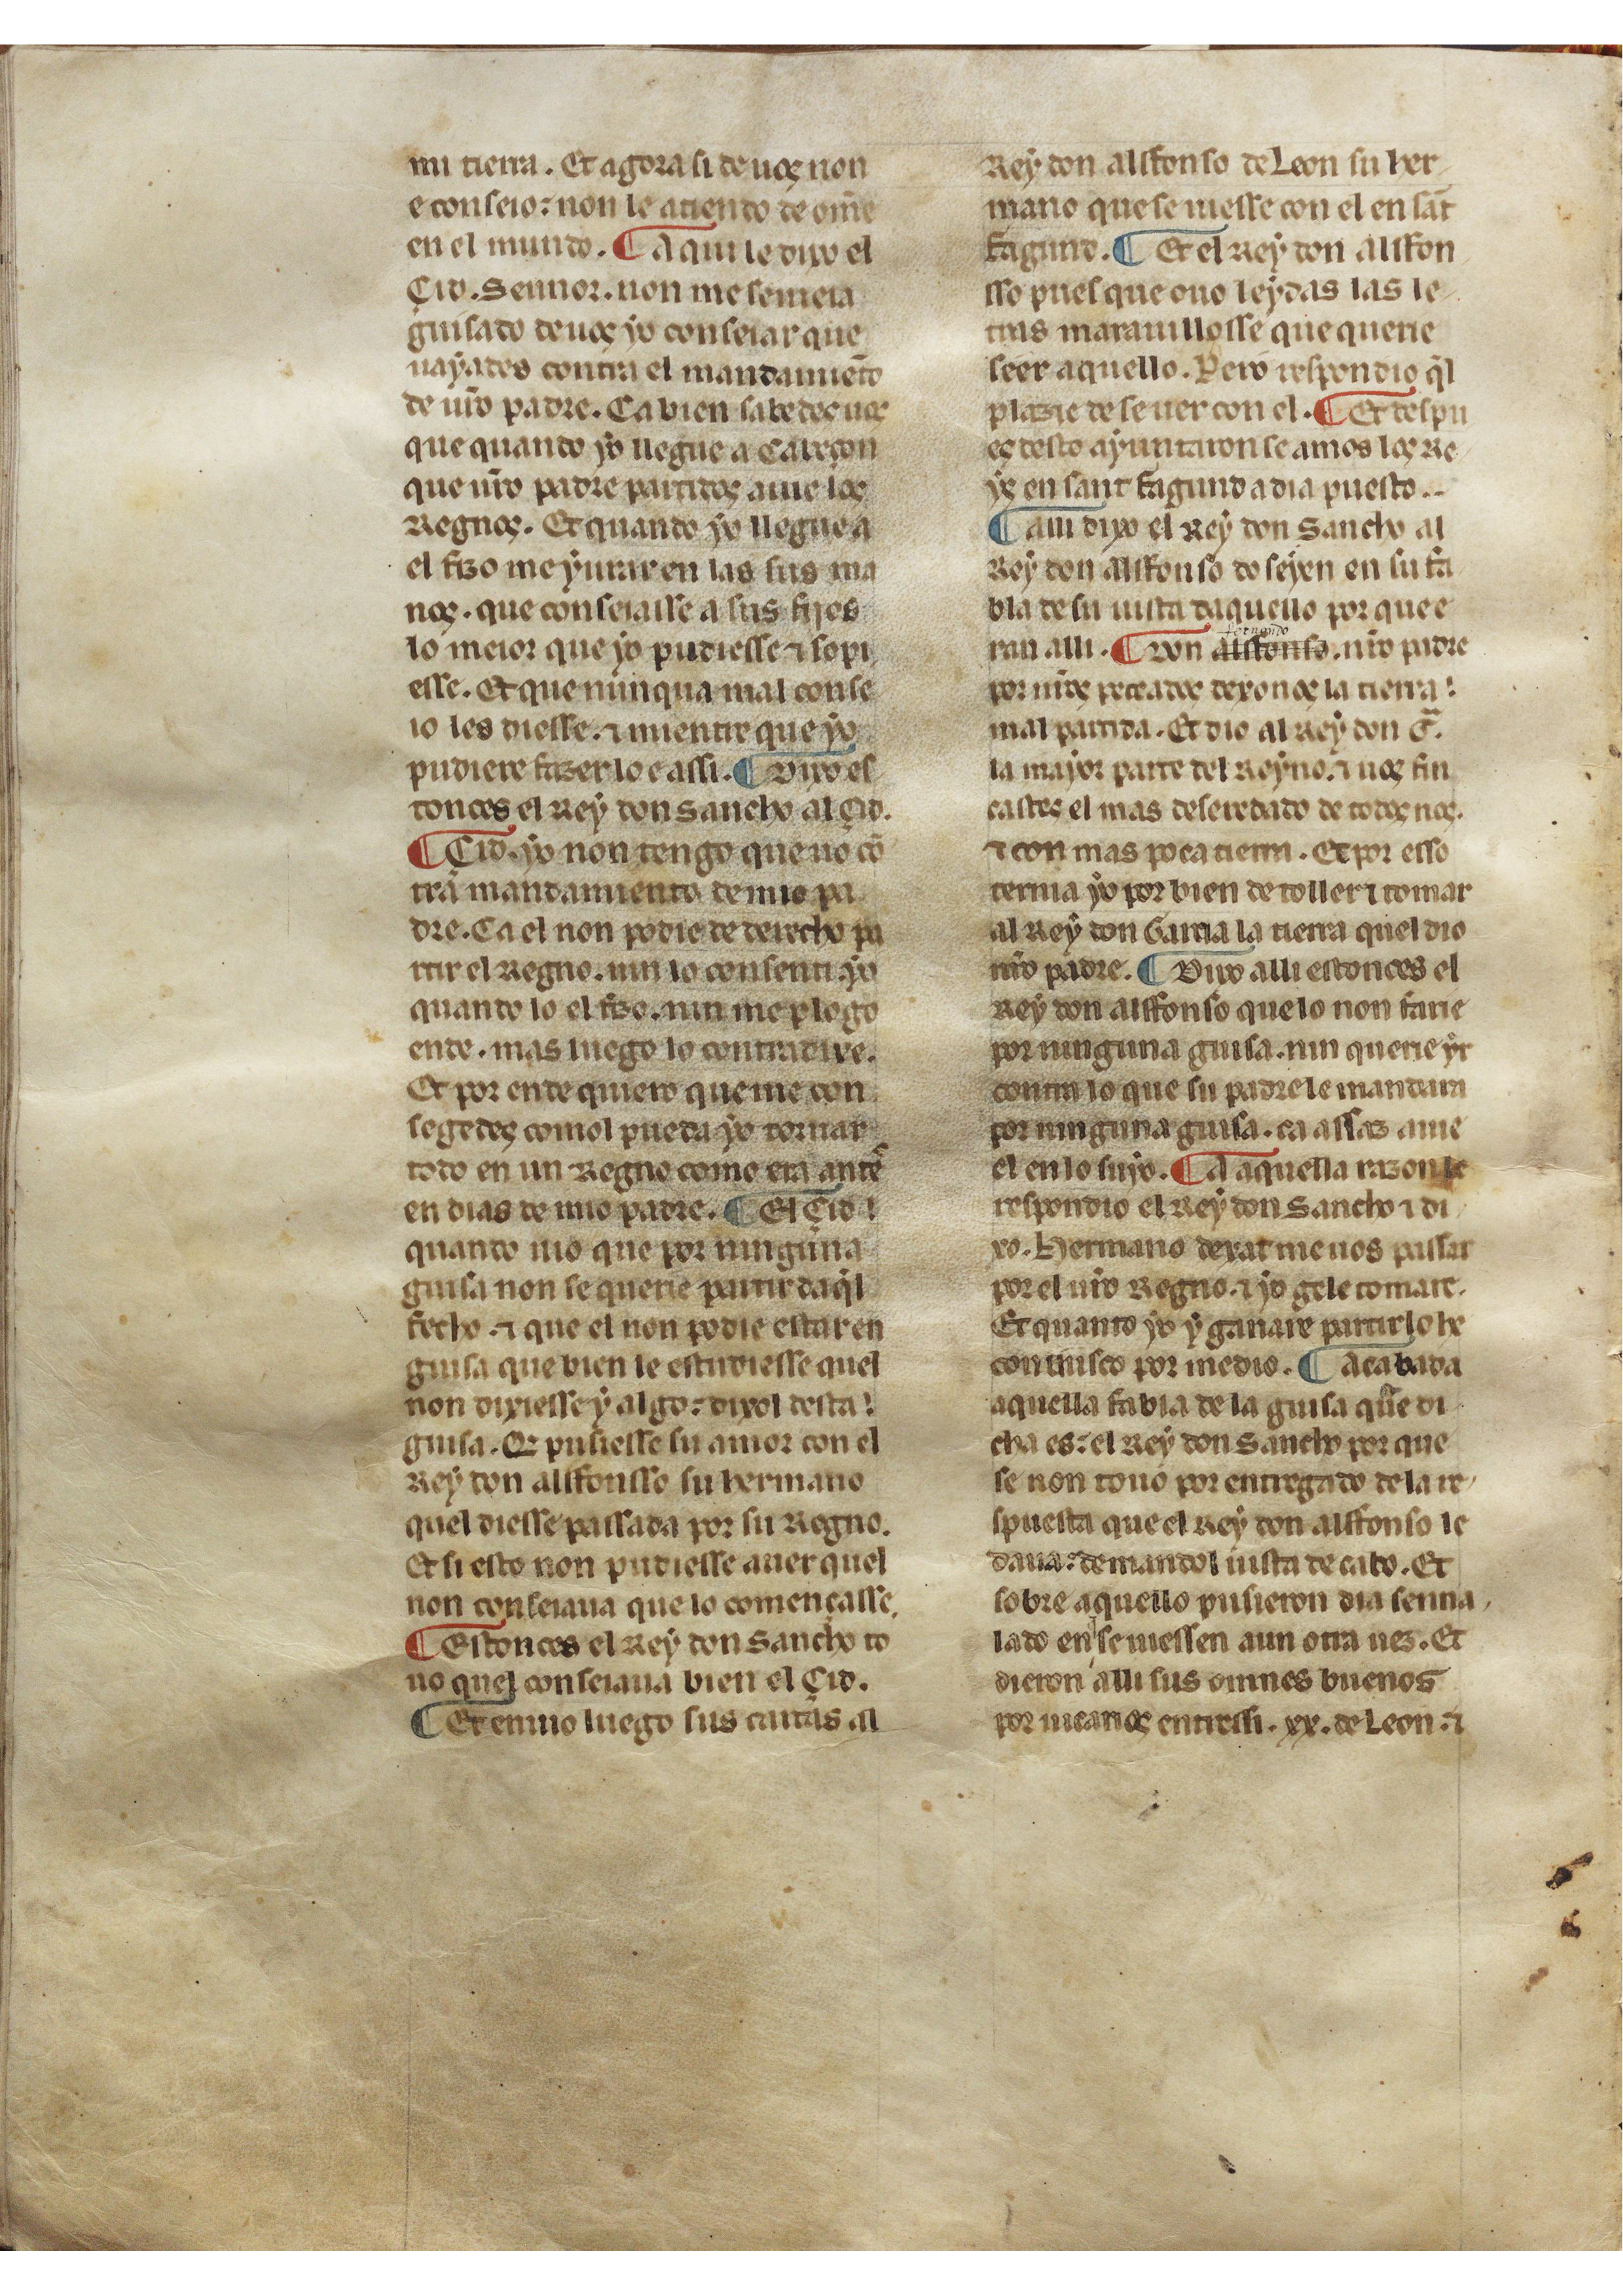 mi tierra. Et agora si de uos non
e conseio: non le atiendo de om̃e
en el mundo. ¶ Aqui le dixo el
Çid. Sennor. non me semeia
guisado de uos yo conseiar que
uayades contra el mandamiẽto
de ur̃o padre. Ca bien sabedes uos
que quando yo llegue a Cabeçon
que ur̃o padre partidos auie los
Regnos. Et quando yo llegue a
el fizo me yurar en las sus ma
nos. que conseiasse a sus fijos
lo meior que yo pudiesse ⁊ sopi
esse. Et que nunqua mal conse
io les diesse. ⁊ mientre que yo
pudiere fazer lo e assi. ¶ Dixo es
tonces el Rey don Sancho al Çid.
¶ Çid. yo non tengo que uo cõ
tra mandamiento de mio pa
dre. Ca el non podie de derecho pa
rtir el Regno. nin lo consenti yo
quando lo el fizo. nin me plogo
ende. mas luego lo contradixe.
Et por ende quiero que me con
segedes comol pueda yo tornar
todo en un Regno como era ante
en dias de mio padre. ¶ El Çid
quando uio que por ninguna
guisa non se querie partir daq̃l
fecho. ⁊ que el non podie estar en
guisa que bien le estudiesse quel
non dixiesse y algo: dixol desta
guisa. Q̃ pusiesse su amor con el
Rey don alffonsso su hermano
quel diesse passada por su Regno.
Et si esto non pudiesse auer quel
non conseiaua que lo començasse.
¶ Estonces el Rey don Sancho to
uo quel conseiaua bien el Çid.
¶ Et enuio luego sus cartas al
Rey don alffonso de Leon su her
mano que se uiesse con el en sãt
fagund. ¶ Et el Rey don Alffon
sso pues que ouo leydas las le
tras marauillosse que querie
seer aquello. Pero respondio q̃l
plazie de se uer con el. ¶ Et despu
es desto ayuntaron se amos los Re
ys en sant fagund a dia puesto..
¶ Alli dixo el Rey don Sancho al
Rey don Alffonso do seyen en su fa
bla de su uista daquello por que e
ran alli. ¶ Don alffonso fernando. nr̃o padre
por nr̃os peccados dexo nos la tierra
mal partida. Et dio al Rey don G̃.
la mayor parte del Reyno. ⁊ uos fin
castes el mas deseredado de todos nos.
⁊ con mas poca tierra. Et por esso
ternia yo por bien de toller ⁊ tomar
al Rey don Garcia la tierra quel dio
nr̃o padre. ¶ Dixo alli estonces el
Rey don alffonso que lo non farie
por ninguna guisa. nin querie yr
contra lo que su padre le mandara
por ninguna guisa. ca assaz auie
el en lo suyo. ¶ A aquella razon le
respondio el Rey don Sancho ⁊ di
xo. Hermano dexat me uos passar
por el ur̃o Regno. ⁊ yo gele tomare.
Et quanto yo y ganare partir lo he
conuusco por medio. ¶ Acabada
aquella fabla de la guisa que di
cha es: el Rey don Sancho por que
se non touo por entregado de la re
spuesta que el Rey don alffonso le
daua: demandol uista de cabo. Et
sobre aquello pusieron dia senna
lado en q̃ se uiessen aun otra uez. Et
dieron alli sus omnes buenos
por medianos entressi. xx. de Leon. ⁊